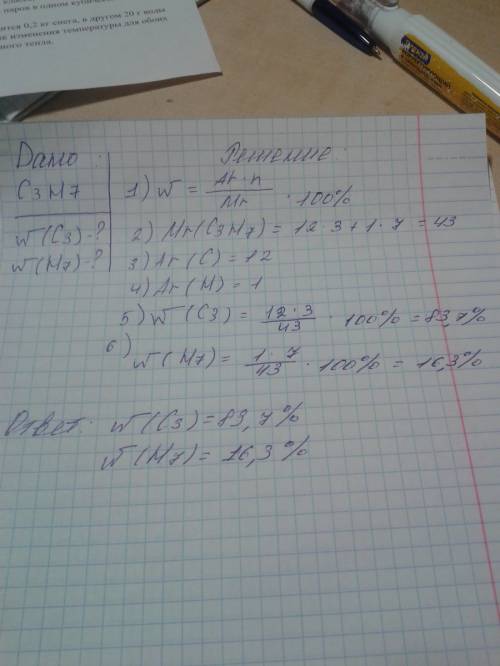 паров в одном
ится 0,2 кг снега, в другом 20 г воды
изменения температуры для обоих
ного тепла.
Дано:
Решение:
C3H7
1) w = Ar·n / Mr · 100%
w(C3)-?
2) Mr(C3H7) = 12·3+1·7 = 43
w(H7)-?
3) Ar(C) = 12
4) Ar(H) = 1
5) w(C3) = 12·3 / 43 · 100% = 83,7%
6) w(H7) = 1·7 / 43 · 100% = 16,3%
Ответ: w(C3) = 83,7%
w(H7) = 16,3%